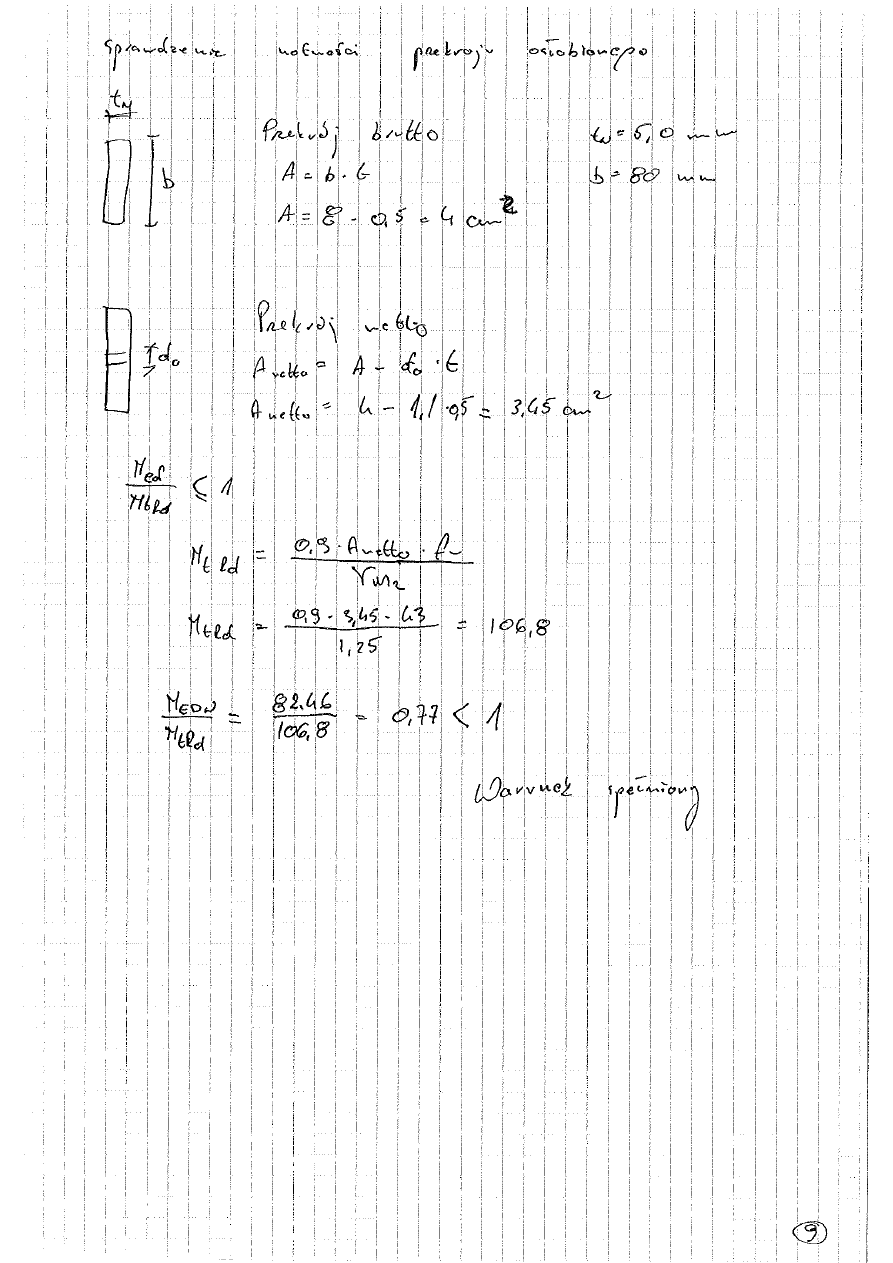 Sprawdzenie nośności przekroju osłabionego
t_w
Przekrój brutto
t_w = 5,0 mm
b
A = b · t
b = 80 mm
A = 8 · 0,5 = 4 cm²
Przekrój netto
d₀
A netto = A - d₀ · t
A netto = 4 - 1,1 · 0,5 = 3,45 cm²
N_Ed / N_tRd ≤ 1
N_t Rd = 0,9 · A netto · f_u / γ_M2
N_tRd = 0,9 · 3,45 · 43 / 1,25 = 106,8
N_EDW / N_tRd = 82.46 / 106,8 = 0,77 < 1
Warunek spełniony
9